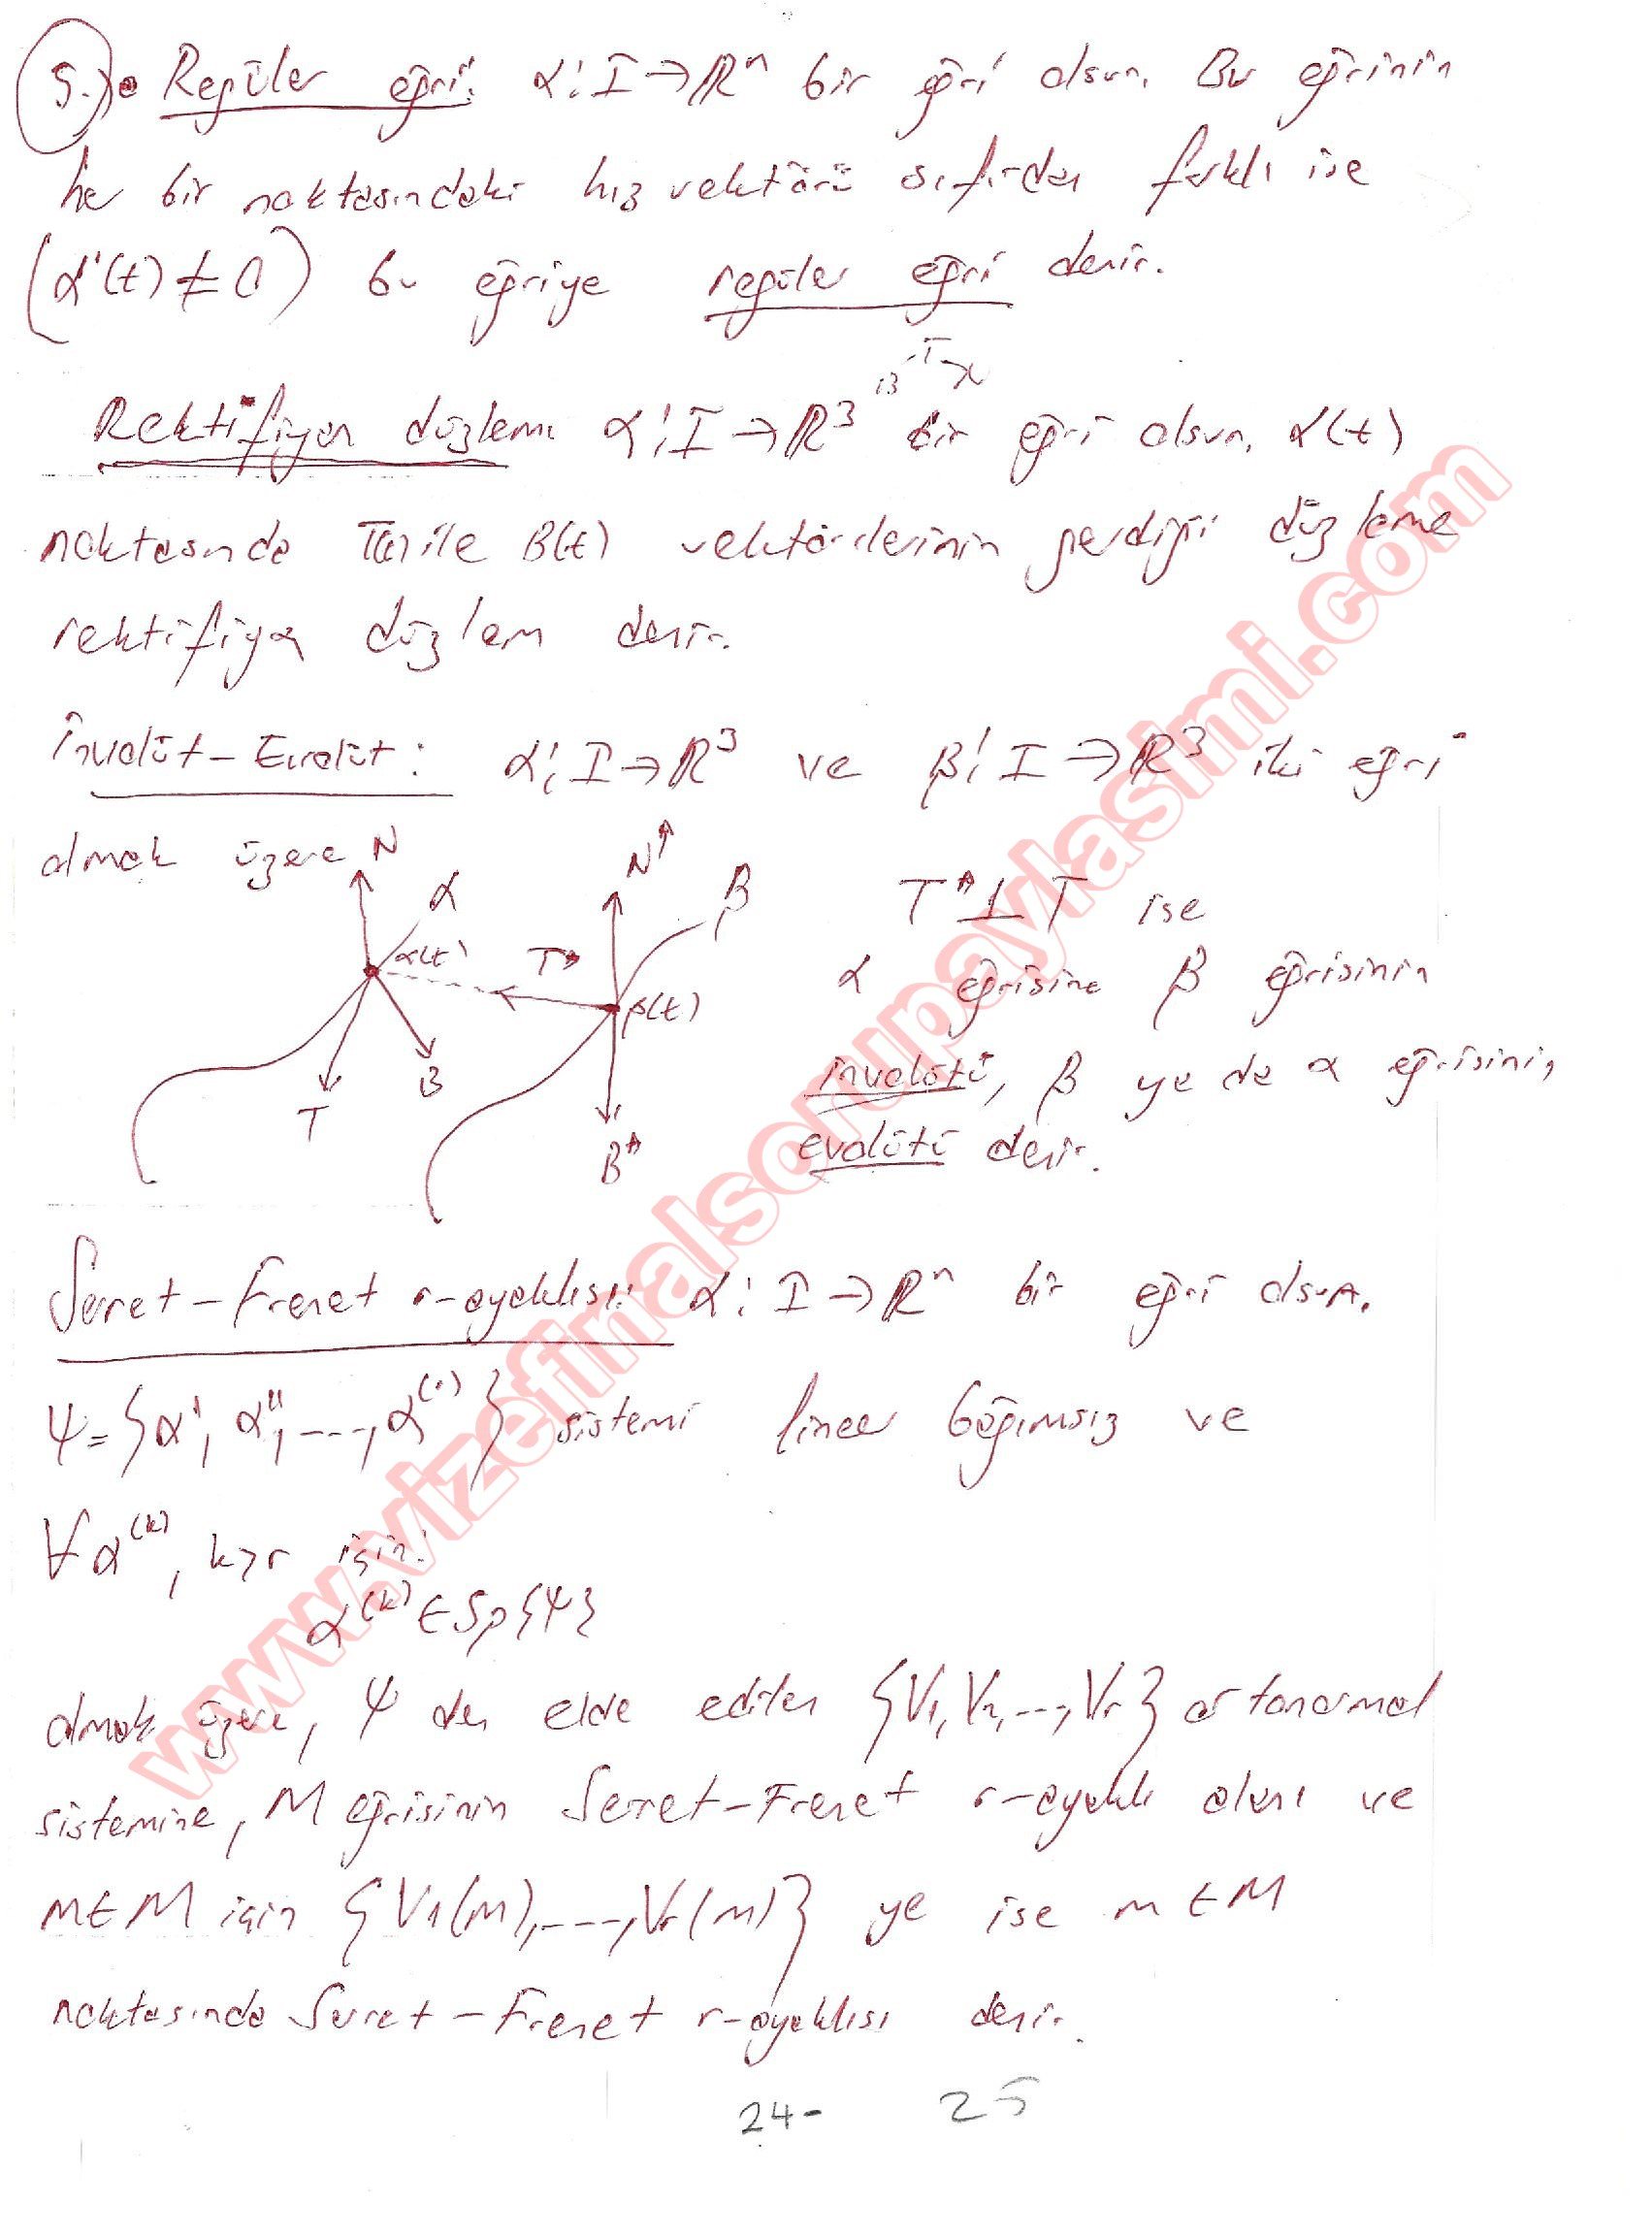 5.) • Regüler eğri: α: I → ℝⁿ bir eğri olsun. Bu eğrinin
her bir noktasındaki hız vektörü sıfırdan farklı ise
(α'(t) ≠ 0) bu eğriye regüler eğri denir.
Rektifiyan düzlemi α: I → ℝ³ bir eğri olsun. α(t)
noktasında T(t) ile B(t) vektörlerinin gerdiği düzleme
rektifiyan düzlem denir.
İnvolüt - Evolüt: α: I → ℝ³ ve β: I → ℝ³ iki eğri
olmak üzere
N
α
α(t)
T
B
N*
β
T*
β(t)
B*
T* ⊥ T ise
α eğrisine β eğrisinin
involütü, β ye de α eğrisinin
evolütü denir.
Serret - Frenet r-ayaklısı: α: I → ℝⁿ bir eğri olsun.
Ψ = {α', α'', ..., α⁽ʳ⁾} sistemi lineer bağımsız ve
∀ α⁽ᵏ⁾, k>r için:
α⁽ᵏ⁾ ∈ Sp{Ψ}
olmak üzere, Ψ den elde edilen {V₁, V₂, ..., Vr} ortonormal
sistemine, M eğrisinin Serret-Frenet r-ayaklı alanı ve
m∈M için {V₁(m), ..., Vr(m)} ye ise m ∈ M
noktasında Serret - Frenet r-ayaklısı denir.
24- 25
www.vizefinalsorupaylasimi.com